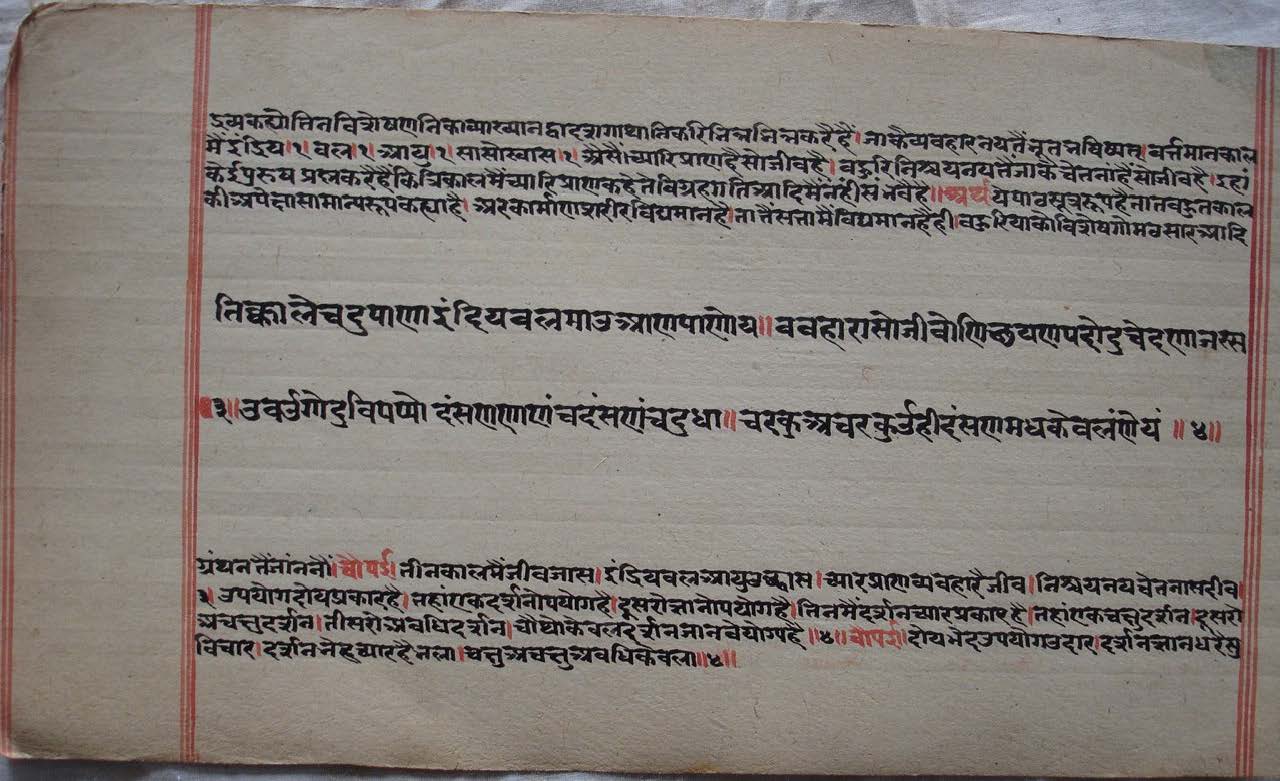 द्रव्य कह्यो तिन विशेषणनिका व्याख्यान द्वादश गाथानि करि भिन्न भिन्न करै हैं। जाकै व्यवहार नयतैं भूत भविष्यत् वर्त्तमान काल
मैं इंद्रिय।१ वल।१ आयु।१ सासोस्वास।१ असैं च्यारि प्राण है सो जीव है। वहुरि निश्चय नयतैं जाकै चेतना है सो जीव है। इहां
कोई पुरुष प्रश्न करै है कि त्रिकाल मैं च्यारि प्राण कहे ते विग्रहगति आदि मैं नंही संभवै है॥ अर्थ ये पाठ सूत्र रूप है तातै वहुत काल
की अपेक्षा सामान्य रूप कह्या है। अर कार्माण शरीर विद्यमान है। तातैं सत्ता मैं विद्यमान है ही। वहुरि याकौ विशेष गोमठसार आदि
तिक्काले चदुपाणा इंदिय वलमाउ आणपाणो य॥ ववहारा सो जीवो णिच्छयणयदो दु चेदणा जस्स
३॥ उवउगो दुवियप्पो दंसण णाणं च दंसणं चदुधा॥ चरकु अचरकु उही दंसणमध केवलं णेयं ॥४॥
ग्रंथनतैं जांननौं। चौपई। तीन काल मैं जीव जास। इंद्रिय वल आयु उच्छास। च्यार प्राण व्यवहारै जीव। निश्चय नय चेतना सदीव।
३ उपयोग दोय प्रकार है। तहां एक दर्शनोपयोग है। दूसरो ज्ञानोपयोग है। तिनमैं दर्शन च्यार प्रकार है। तहां एक चक्षुदर्शन। दूसरो
अचक्षुदर्शन। तीसरो अवधि दर्शन। चौथा केवल दर्शन जानवे योग्य है॥४॥ चौपई। दोय भेद उपयोग उदार। दर्शन ज्ञान धरै सु
विचार। दर्शन भेद च्यार है भला। चक्षु अचक्षु अवधि केवला॥४॥